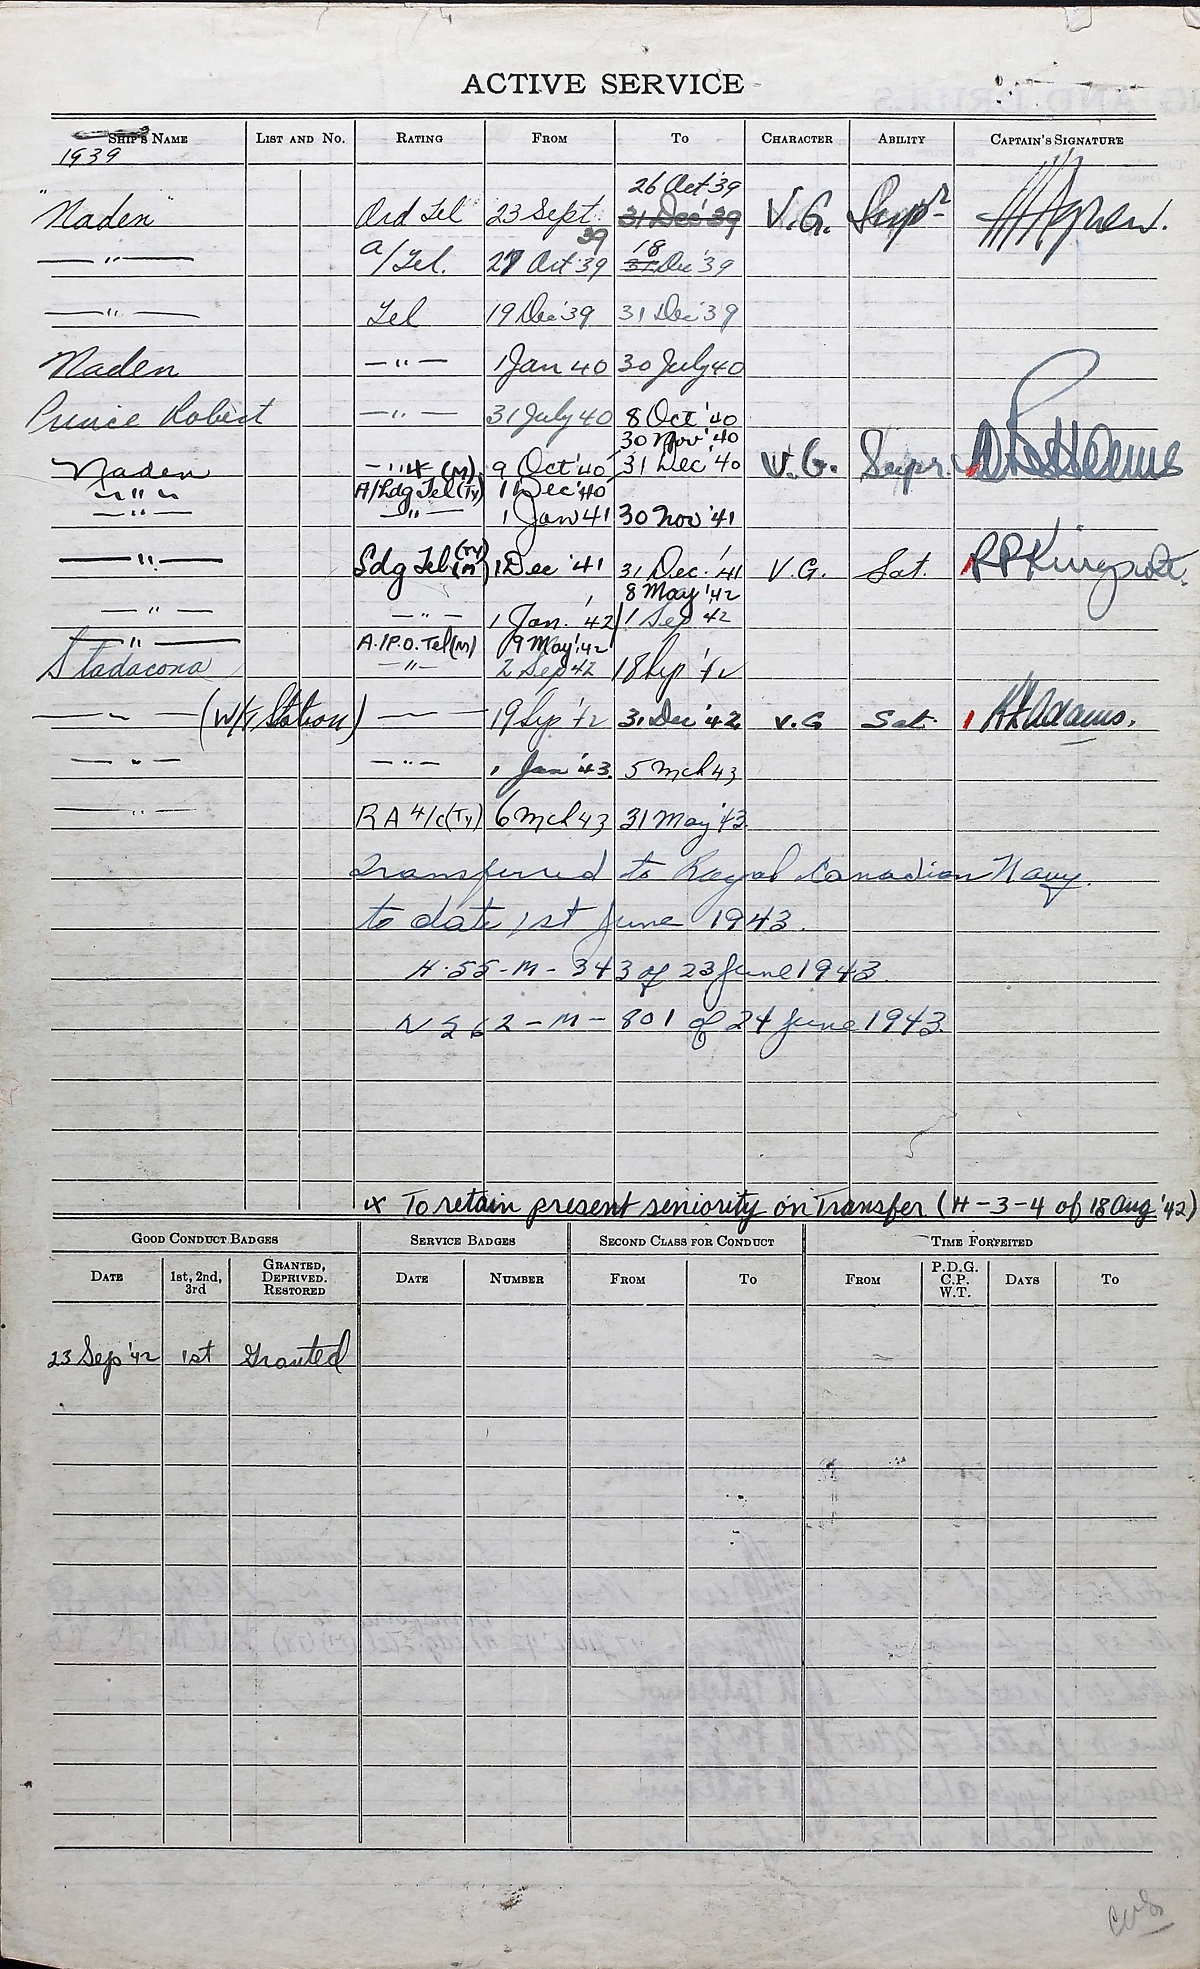 ACTIVE SERVICE
SHIP'S NAME LIST AND NO. RATING FROM TO CHARACTER ABILITY CAPTAIN'S SIGNATURE
1939
26 Oct '39
"Naden" Ord Tel 23 Sept. 39 31 Dec '39 V.G. Supr
—"— A/Tel. 27 Oct '39 18 31 Dec '39
—"— Tel 19 Dec '39 31 Dec '39
Naden —"— 1 Jan 40 30 July 40
Prince Robert —"— 31 July 40 8 Oct '40
30 Nov '40
Naden —"— (M) 9 Oct '40 31 Dec '40 V.G. Supr.
—"— A/Ldg Tel (Ty) 1 Dec '40
—"— —"— 1 Jan 41 30 Nov '41
—"— Ldg Tel (Ty) (M) 1 Dec '41 31 Dec. '41 V.G. Sat.
8 May '42
—"— —"— 1 Jan. '42 1 Sep '42
—"— A.P.O. Tel (M) 9 May '42
Stadacona —"— 2 Sep 42 18 Sep '42
—"— (W/T Station) —"— 19 Sep '42 31 Dec '42 V.G Sat. Adams.
—"— —"— 1 Jan '43 5 Mch 43
—"— RA 4/c (Ty) 6 Mch 43 31 May '43
Transferred to Royal Canadian Navy.
to date 1st June 1943.
H.55-M-343 of 23 June 1943.
N S 62-M-801 of 24 June 1943.
x To retain present seniority on Transfer (H-3-4 of 18 Aug '42)
GOOD CONDUCT BADGES SERVICE BADGES SECOND CLASS FOR CONDUCT TIME FORFEITED
DATE 1st, 2nd, 3rd GRANTED, DEPRIVED. RESTORED DATE NUMBER FROM TO FROM P.D.G. C.P. W.T. DAYS TO
23 Sep '42 1st Granted